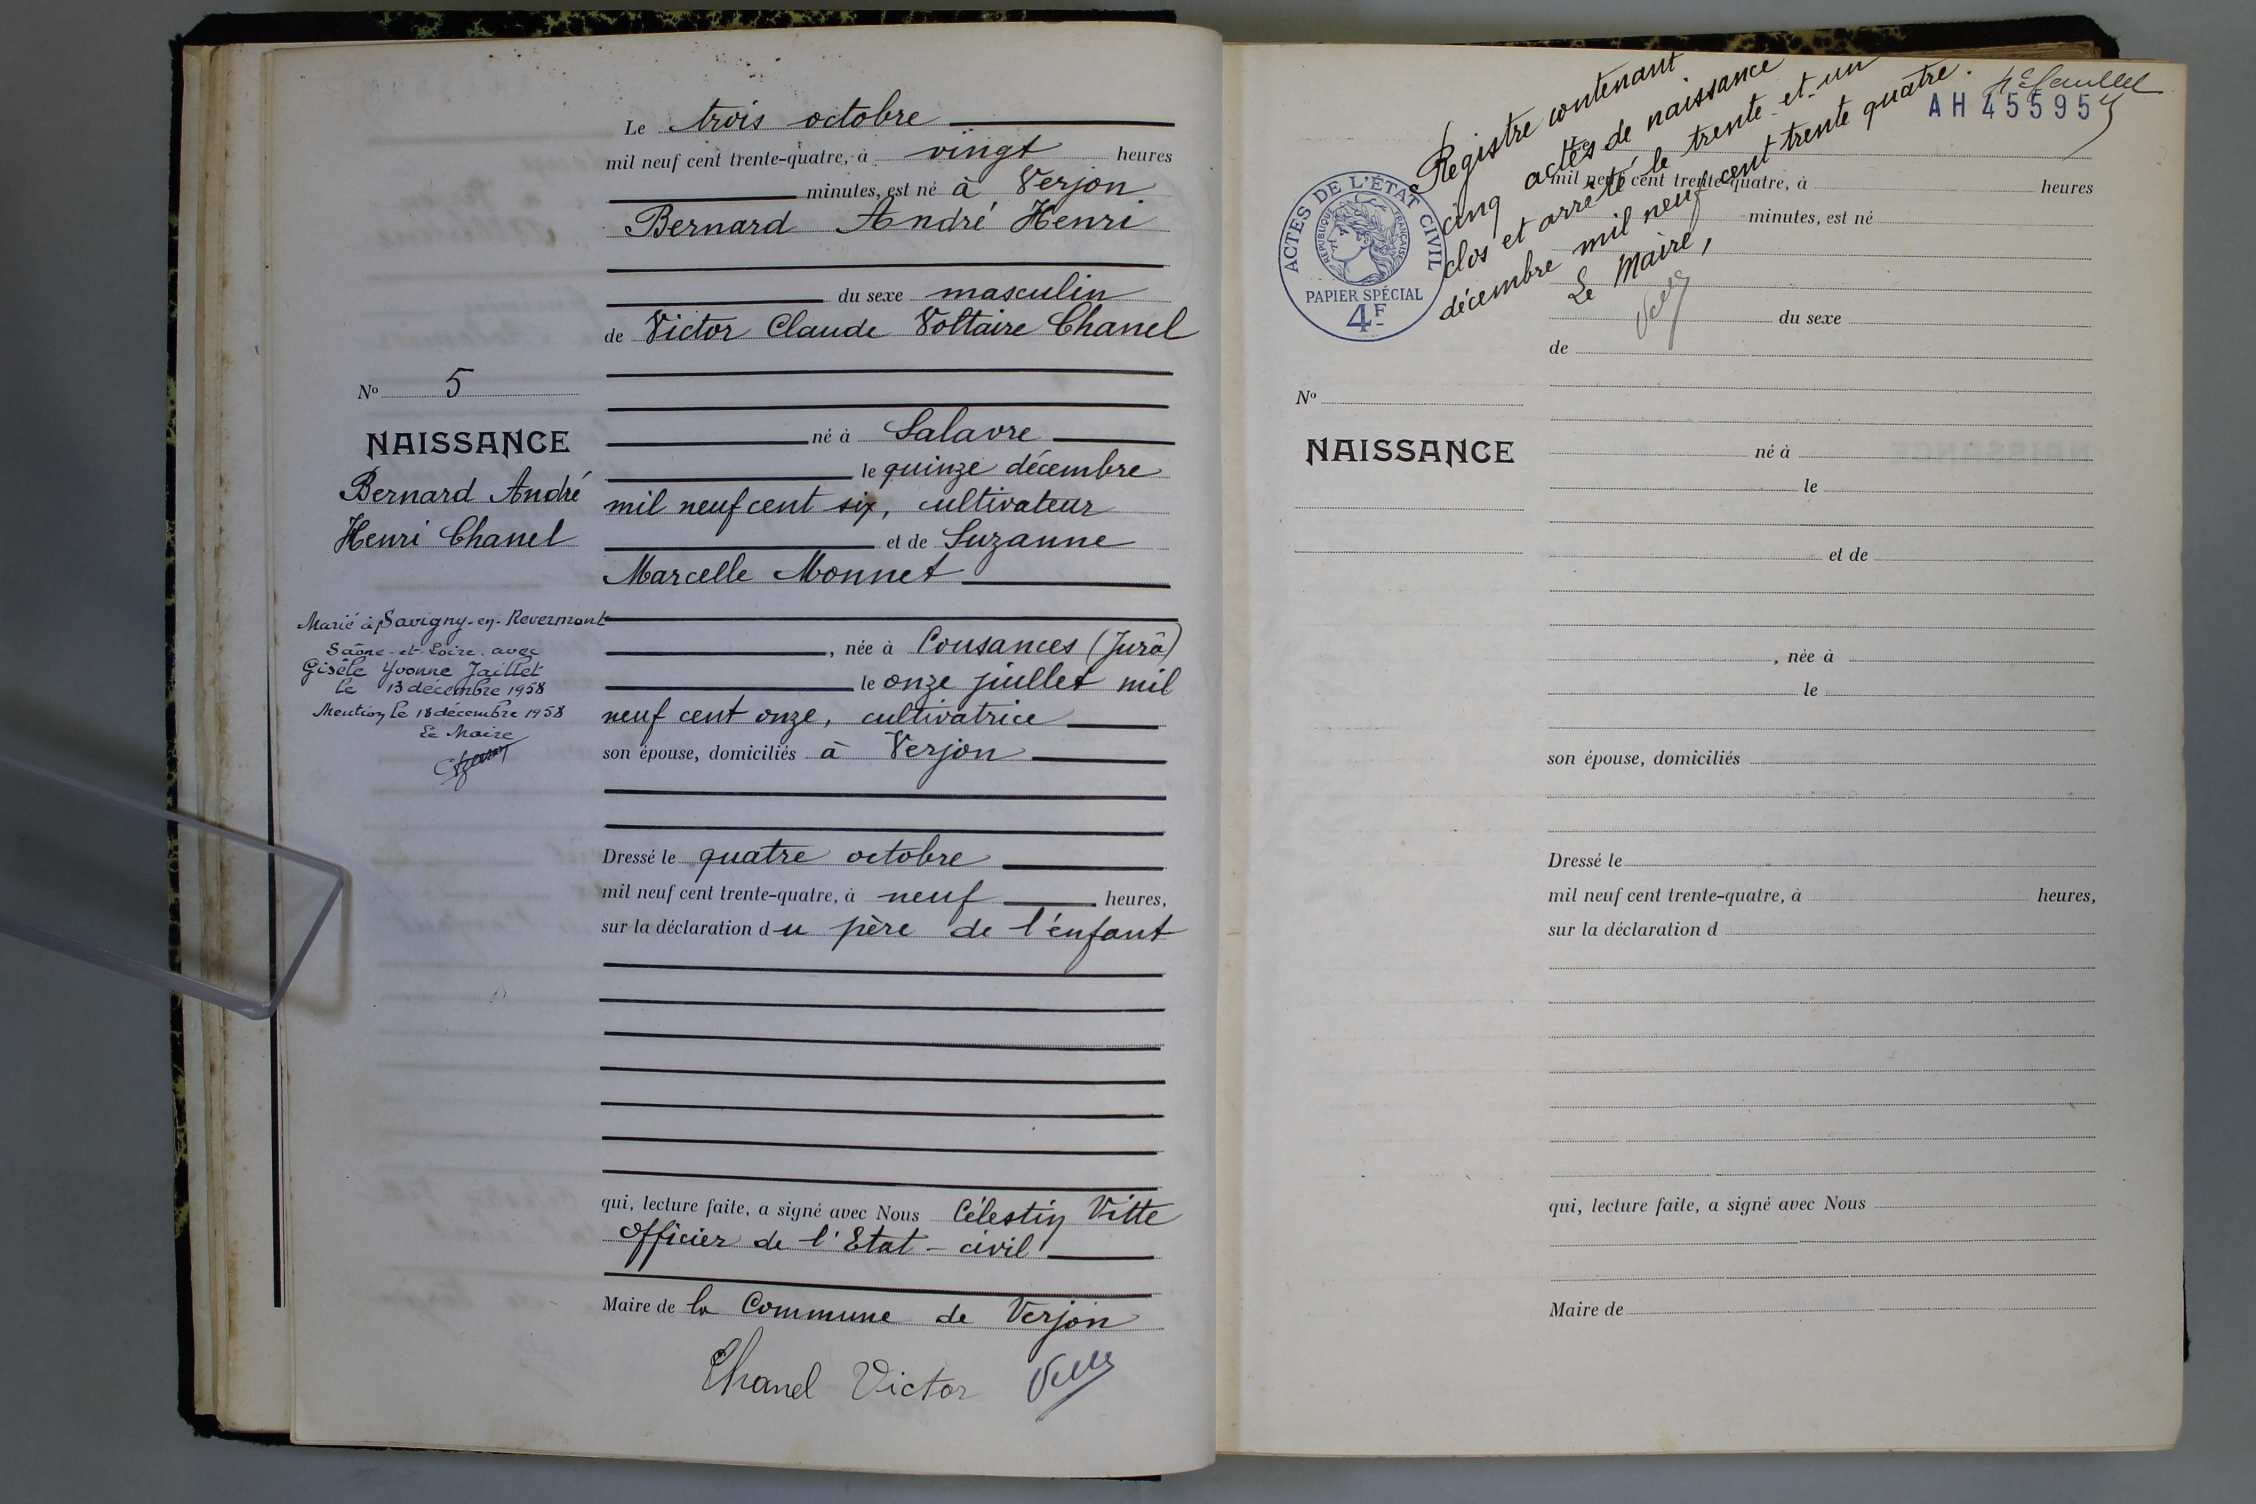 Le trois octobre
mil neuf cent trente-quatre, à vingt heures
minutes, est né à Verjon
Bernard André Henri
du sexe masculin
de Victor Claude Voltaire Chanel
né à Salavre
le quinze décembre
mil neuf cent six, cultivateur
et de Suzanne
Marcelle Monnet
, née à Cousances (Jura)
le onze juillet mil
neuf cent onze, cultivatrice
son épouse, domiciliés à Verjon
Dressé le quatre octobre
mil neuf cent trente-quatre, à neuf heures,
sur la déclaration du père de l'enfant
qui, lecture faite, a signé avec Nous Célestin Vitte
officier de l'Etat-civil
Maire de la Commune de Verjon
Chanel Victor
No 5
NAISSANCE
Bernard André
Henri Chanel
Marié à Savigny-en-Revermont
Saône-et-Loire. avec
Gisèle Yvonne Jaillet
le 13 décembre 1958
Mention le 18 décembre 1958
Le Maire
Registre contenant
cinq actes de naissance
clos et arrêté le trente-et-un
décembre mil neuf cent trente quatre.
Le Maire,
4e feuillet
AH 45595
ACTES DE L'ÉTAT CIVIL
RÉPUBLIQUE FRANÇAISE
PAPIER SPÉCIAL
4F
mil neuf cent trente-quatre, à heures
minutes, est né
du sexe
de
No
NAISSANCE
né à
le
et de
, née à
le
son épouse, domiciliés
Dressé le
mil neuf cent trente-quatre, à heures,
sur la déclaration d
qui, lecture faite, a signé avec Nous
Maire de